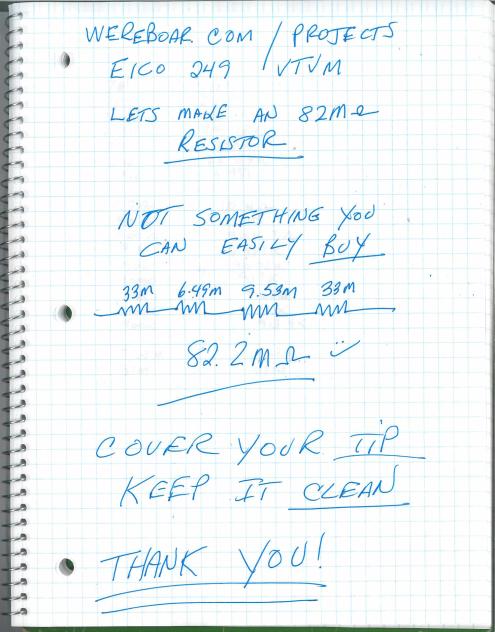 WEREBOAR.COM / PROJECTS
EICO 249 / VTVM
LETS MAKE AN 82MΩ
RESISTOR.
NOT SOMETHING YOU
CAN EASILY BUY
33M 6.49M 9.53M 33M
82.2MΩ
COVER YOUR TIP
KEEP IT CLEAN
THANK YOU!